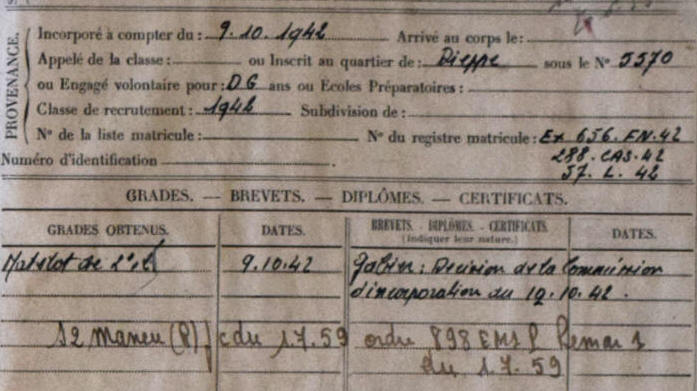 PROVENANCE.
Incorporé à compter du : 9.10.1942 Arrivé au corps le :
Appelé de la classe : ou Inscrit au quartier de : Dieppe sous le N° 5570
ou Engagé volontaire pour : DG ans ou Ecoles Préparatoires :
Classe de recrutement : 1942 Subdivision de :
N° de la liste matricule : N° du registre matricule : Ex 656.FN.42
Numéro d'identification 288.CAS.42
57.L.42
GRADES. — BREVETS. — DIPLÔMES. — CERTIFICATS.
GRADES OBTENUS. DATES. BREVETS. - DIPLÔMES. - CERTIFICATS. DATES.
(indiquer leur nature.)
Matelot de 2e cl 9.10.42 Gabier : Décision de la Commission
d'incorporation du 19.10.42.
S2 maneu (R) c du 1.7.59 ordre 898 EMS P
du 1.7.59